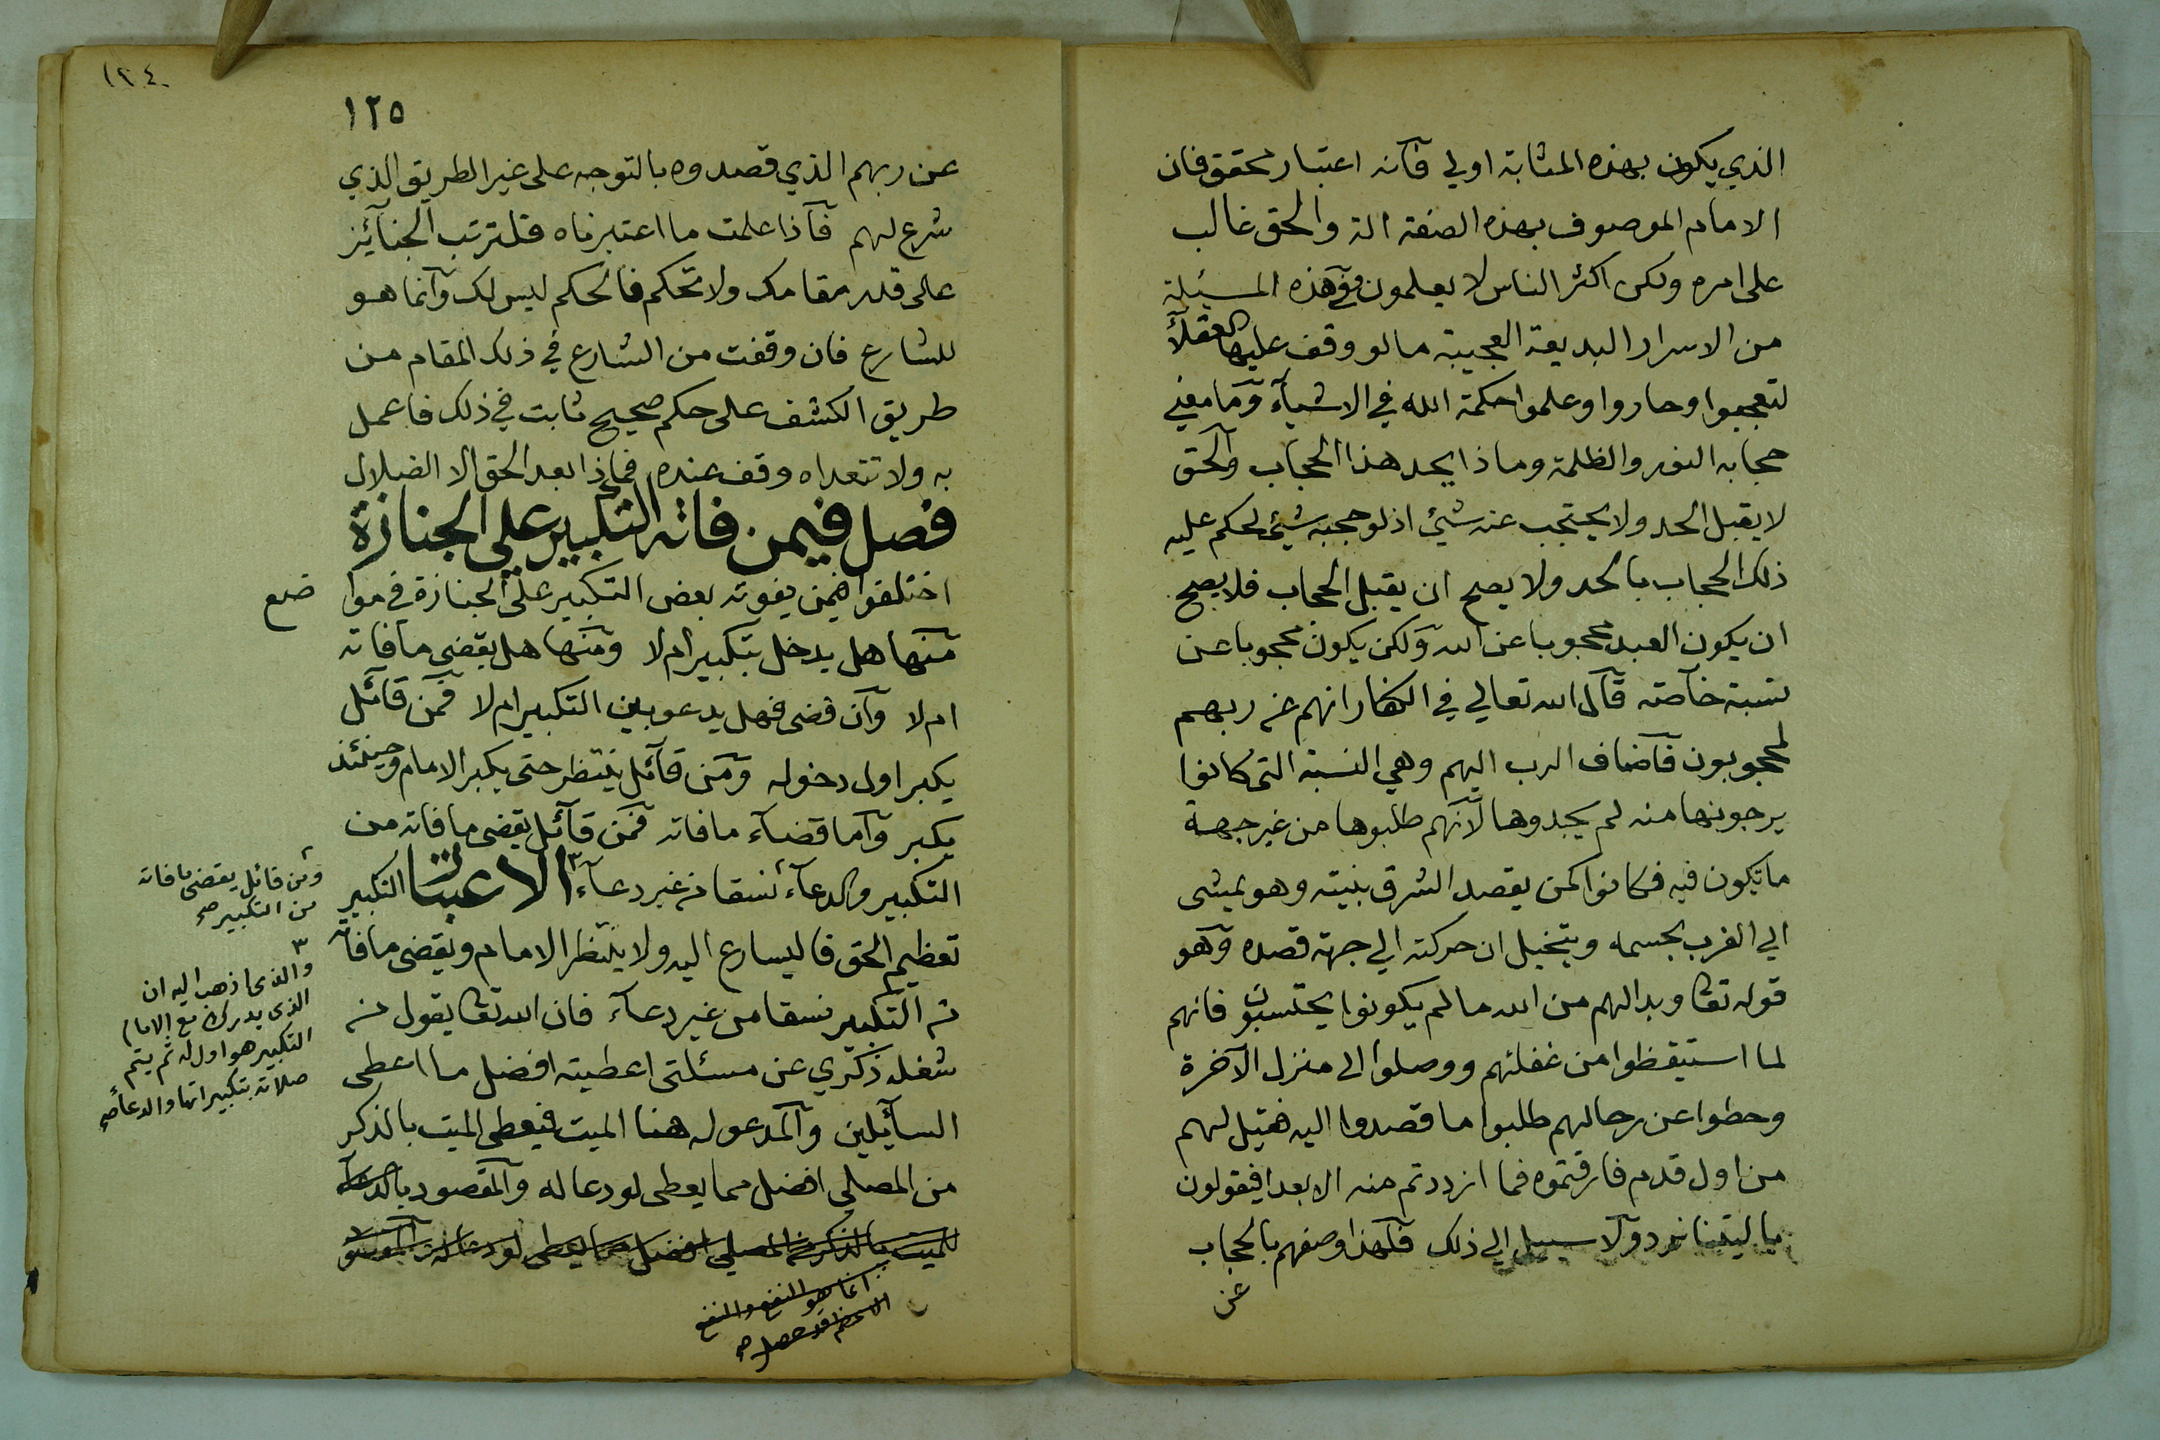 الذي يكون بهذه المثابة اولي فانه اعتبار محقق فان
الامام الموصوف بهذه الصفة الة والحق غالب
على امره ولكن اكثر الناس لا يعلمون وفي هذه المسئلة
من الاسرار البديعة العجيبة ما لو وقف عليها العقلآ
لتعجبوا وحاروا وعلموا حكمة الله في الاشيآء وما معني
حجابه النور والظلمة وماذا يحد هذا الحجاب والحق
لا يقبل الحد ولا يحتجب عنه شيئ اذ لو حجبه شيئ لحكم عليه
ذلك الحجاب بالحد ولا يصح ان يقبل الحجاب فلا يصح
ان يكون العبد محجوبا عن الله ولكن يكون محجوبا عن
نسبة خآصة قال الله تعالي في الكفار انهم عن ربهم
لمحجوبون فآضاف الرب اليهم وهي النسبة التى كانوا
يرجونها منه لم يجدوها لآنهم طلبوها من غير جهة
ما تكون فيه فكانوا كمن يقصد الشرق بنيته وهو يمشى
الي الغرب بجسمه ويتخيل ان حركته الي جهة قصده وهو
قوله تعا وبدا لهم من الله ما لم يكونوا يحتسبون فانهم
لما استيقظوا من غفلتهم ووصلوا الى منزل الآخرة
وحطوا عن رحالهم طلبوا ما قصدوا اليه فقيل لهم
من اول قدم فارقتموه فما ازددتم منه الا بعدا فيقولون
يا ليتنا نرد ولا سبيل الي ذلك فلهذا وصفهم بالحجاب
عن
١٢٤
١٢٥
عن ربهم الذي قصدوه بالتوجه على غير الطريق الذي
شرع لهم فآذا علمت ما اعتبرناه فلترتب الجنآئز
على قدر مقامك ولا تحكم فالحكم ليس لك وآنما هو
للشارع فان وقفت من الشارع في ذلك المقام من
طريق الكشف على حكم صحيح ثابت في ذلك فاعمل
به ولا تتعداه وقف عنده فماذا بعد الحق الا الضلال
فصل فيمن فاته التكبير علي الجنازة
اختلفوا فيمن يفوته بعض التكبير على الجنازة في موا
ضع
منها هل يدخل بتكبير ام لا ومنها هل يقضي ما فاته
ام لا وآن قضى فهل يدعو بين التكبير ام لا فمن قآئل
يكبر اول دخوله ومن قآئل ينتظر حتى يكبر الامام وحينئذ
يكبر وآما قضآء ما فاته فمن قآئل يقضى ما فاته من
التكبير والدعآء نسقا من غير دعآء الاعتبار التكبير
ومن قائل يقضى ما فاته
من التكبير صح
تعظيم الحق فاليسارع اليه ولا ينتظر الامام ويقضى ما فاته
٣
والذى اذهب اليه ان
الذى يدركه مع الامام
التكبير هو اول له ثم يتم
صلاته بتكبيراتها والدعآء صح
من التكبير نسقا من غير دعآء فان الله تعا يقول من
شغله ذكري عن مسئلتى اعطيته افضل ما اعطى
السآيلين والمدعو له هنا الميت فيعطى الميت بالذكر
من المصلي افضل مما يعطى لو دعا له والمقصود بالدعآء
للميت بالذكر من المصلي افضل مما يعطى لو دعا له
انما هو النفع والنفع
الاعظم قد حصل صح